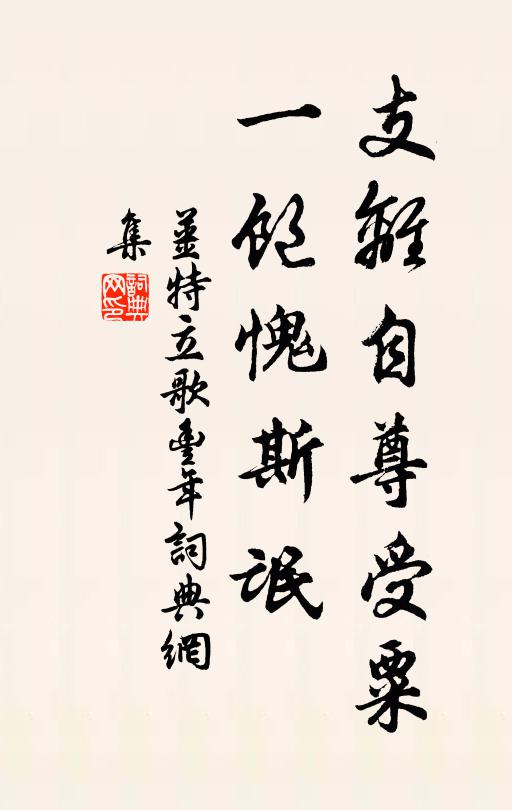 支離自尊受粟
一飽愧斯氓
薑特立歌豐年詞典網
集
詞典
网印